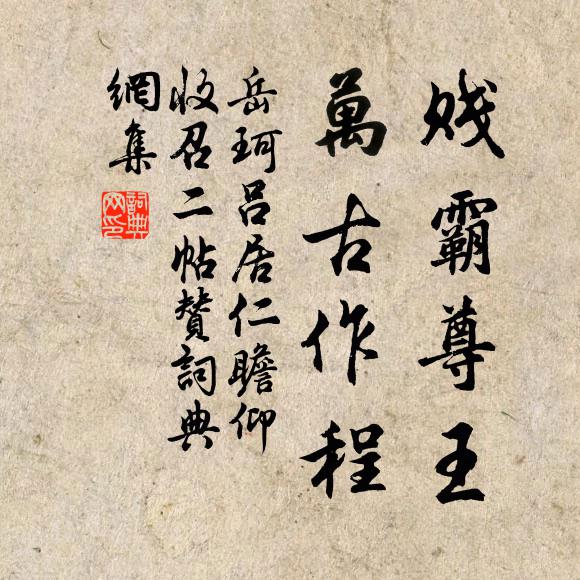 賤霸尊王
萬古作程
岳珂呂居仁瞻仰
收召二帖贊詞典
網集
詞典
网印